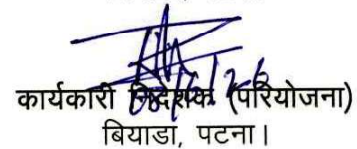 कार्यकारी निदेशक (परियोजना)
बियाडा, पटना।